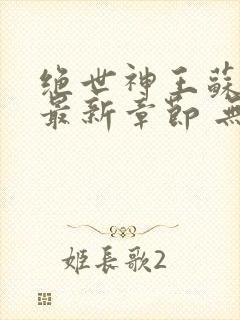 绝世神王蘇
最新章節 無
姬長歌2